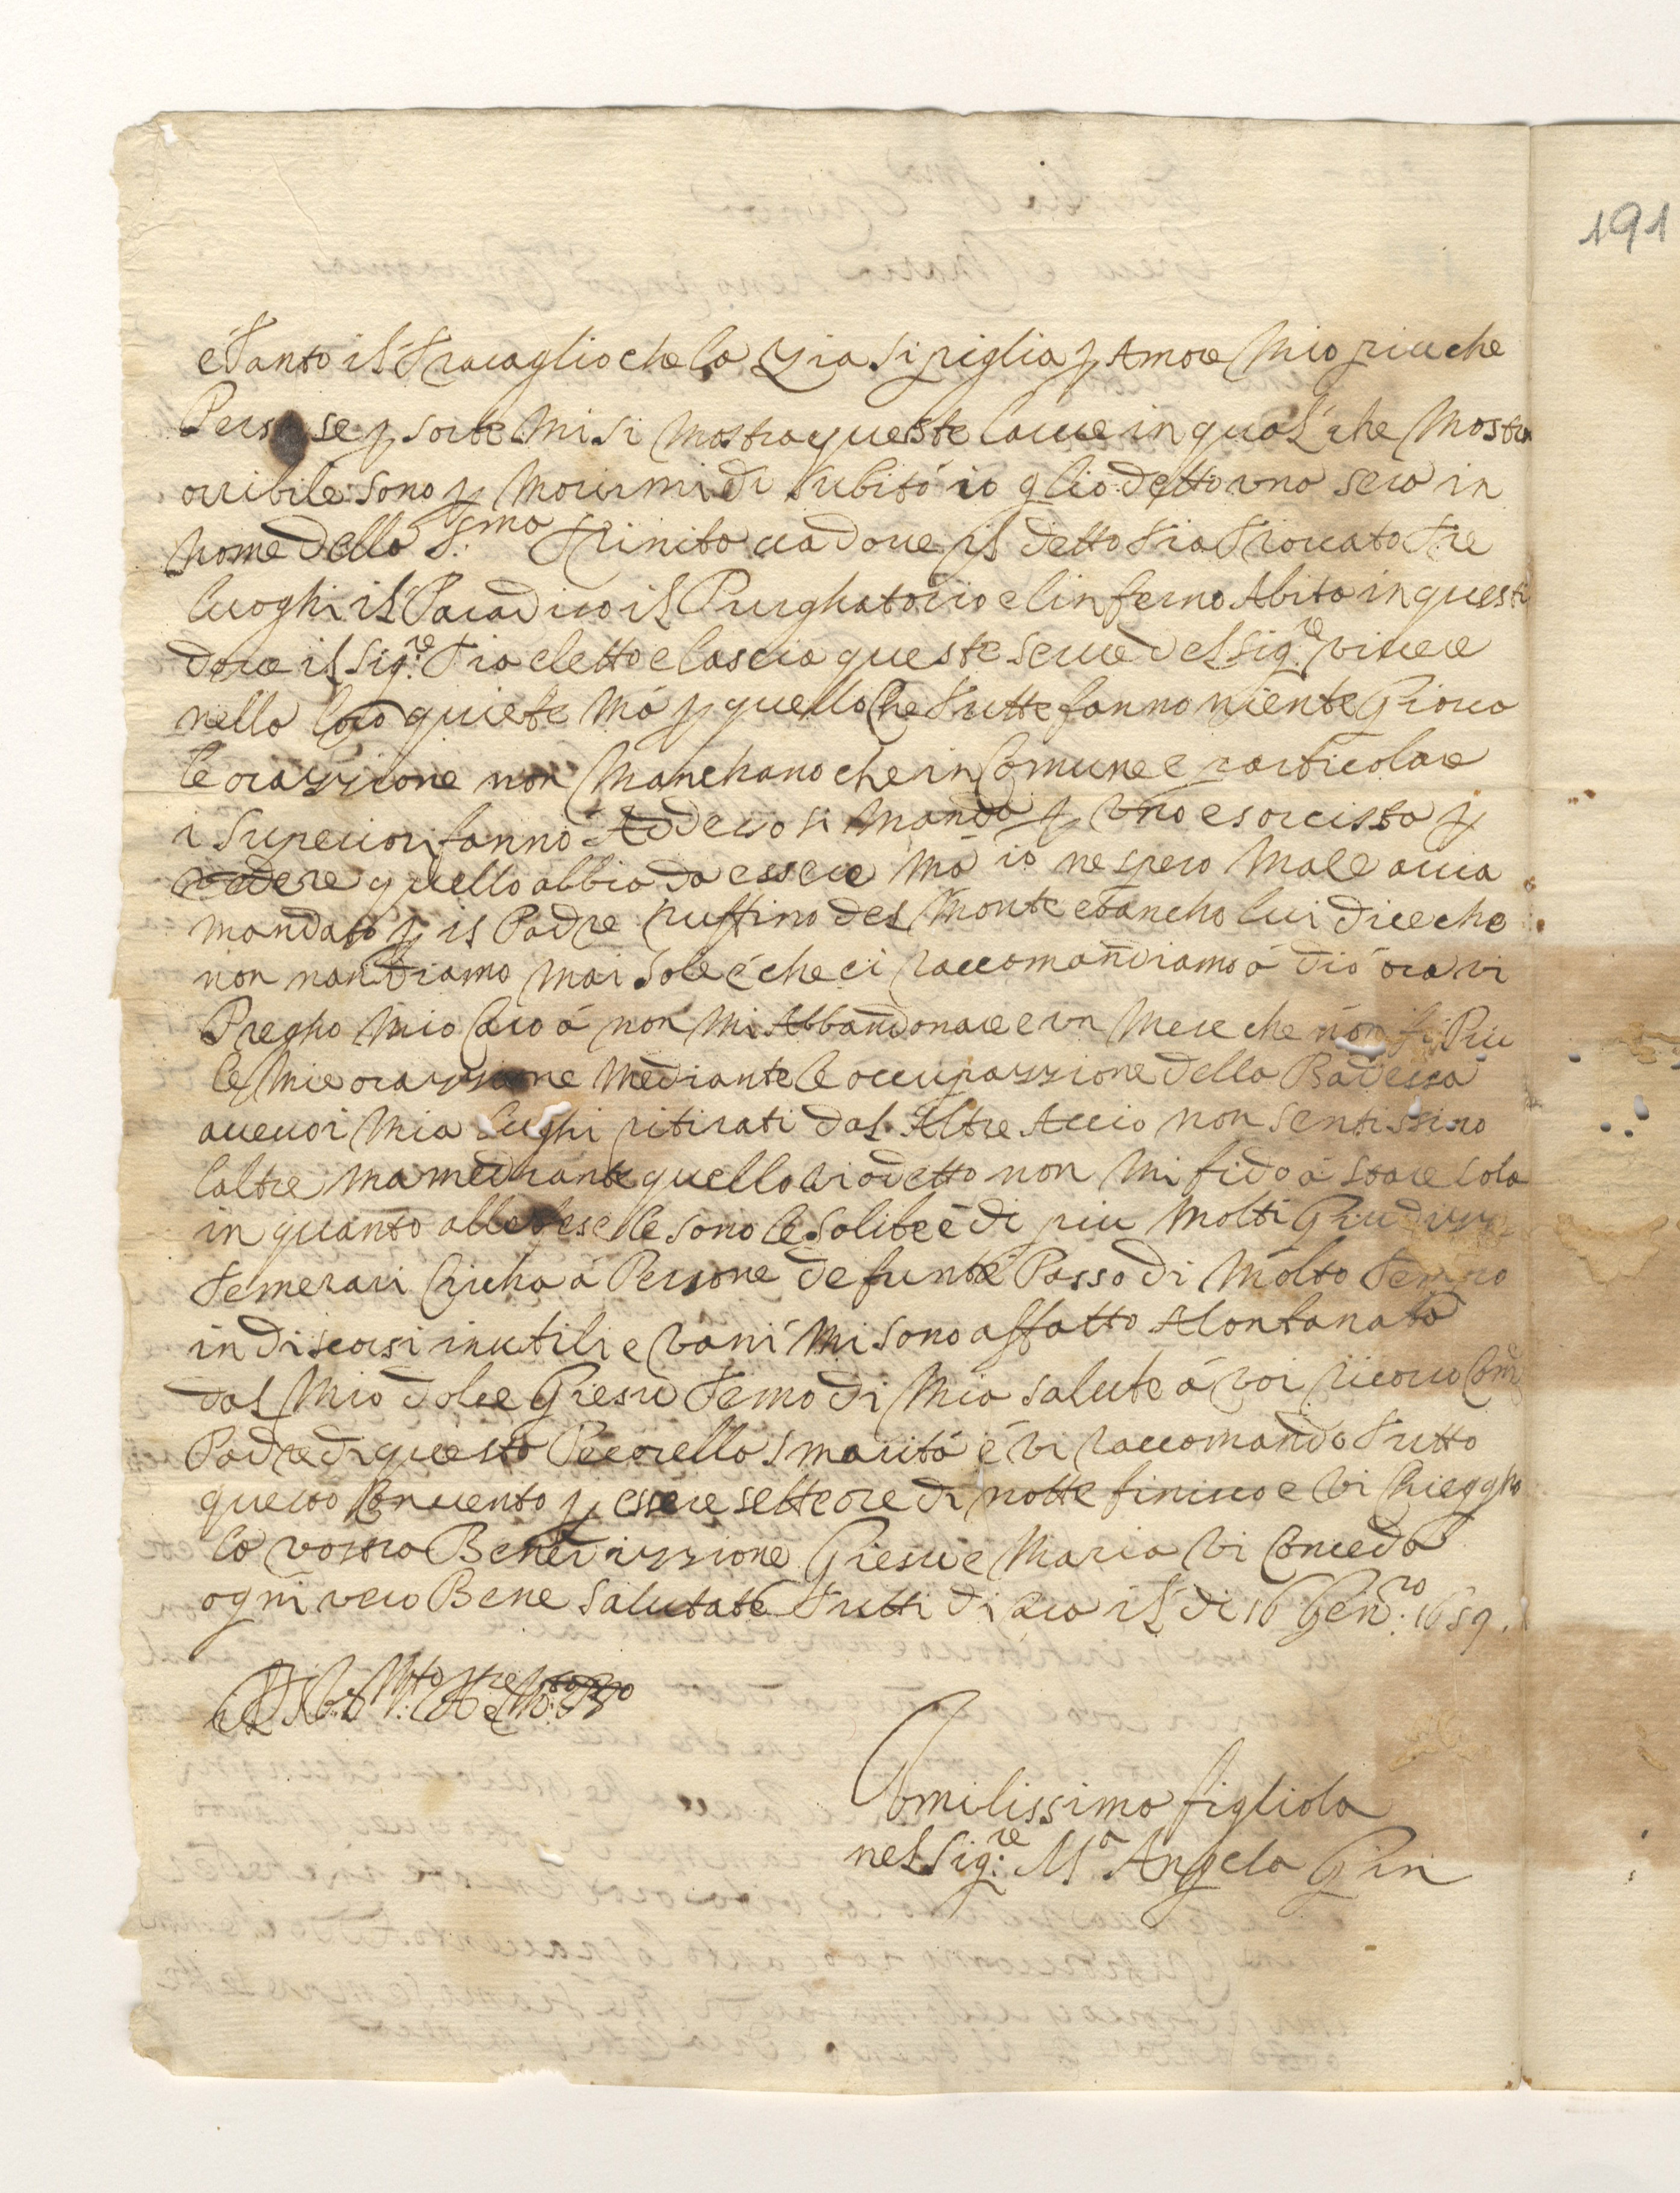 191
e tanto il travaglio che la zia si piglia p Amore Mio piu che
Per se p sorte Mi si mostra queste larve in qual che Mostro
orribile sono p Morirmi di subito io glio detto una sera in
nome della S.ma Trinita va dove il detto tia trovato tre
luoghi il Paradiso il Purghatorio e linferno Abita in questi
dove il Sig.re tia eletto e lascia queste serve del Sig.re vivere
nella loro quiete Má p quello che tutte fanno niente Giova
le orazzione non Manchano che in Comune e particolare
i Superiori fanno Adesso si manda p uno esorcista p
vedere quello abbia da essere Má io ne spero Male avia
mandato p il Padre ruffino del Monte e tancho lui dice che
non nandiamo mai sole é che ci raccomandiamo á dió ora vi
Pregho Mio Caro á non Mi Abbandonare e un Mese che nón fo Piu
le Mie orazzione Mediante le occupazzione della Badessa
avevoi Mia lughi ritirati dal Altre Accio non sentissino
laltre ma mediante quello vio detto non Mi fido á stare sola
in quanto alle sono le solite é di piu Molti Giudizzi
temerari Circha á Persone defunte Passo di Mólto tempo
in discorsi inutili e vani Mi sono affatto Alontanata
dal Mio dolce Giesu temo di Mia salute á voi ricorro Come
Padre di questa Pecorella smarita é vi raccomando tutto
questo Convento p essere sette ore di notte finisco e vi Chiegglio
la vostra Benedizzione Giesu e Maria vi Conceda
ogni vero Bene salutate tutti di Casa il di 16 Gen.ro 1659.
Vomilissima figliola
nel Sig.re M.a Angela Gin